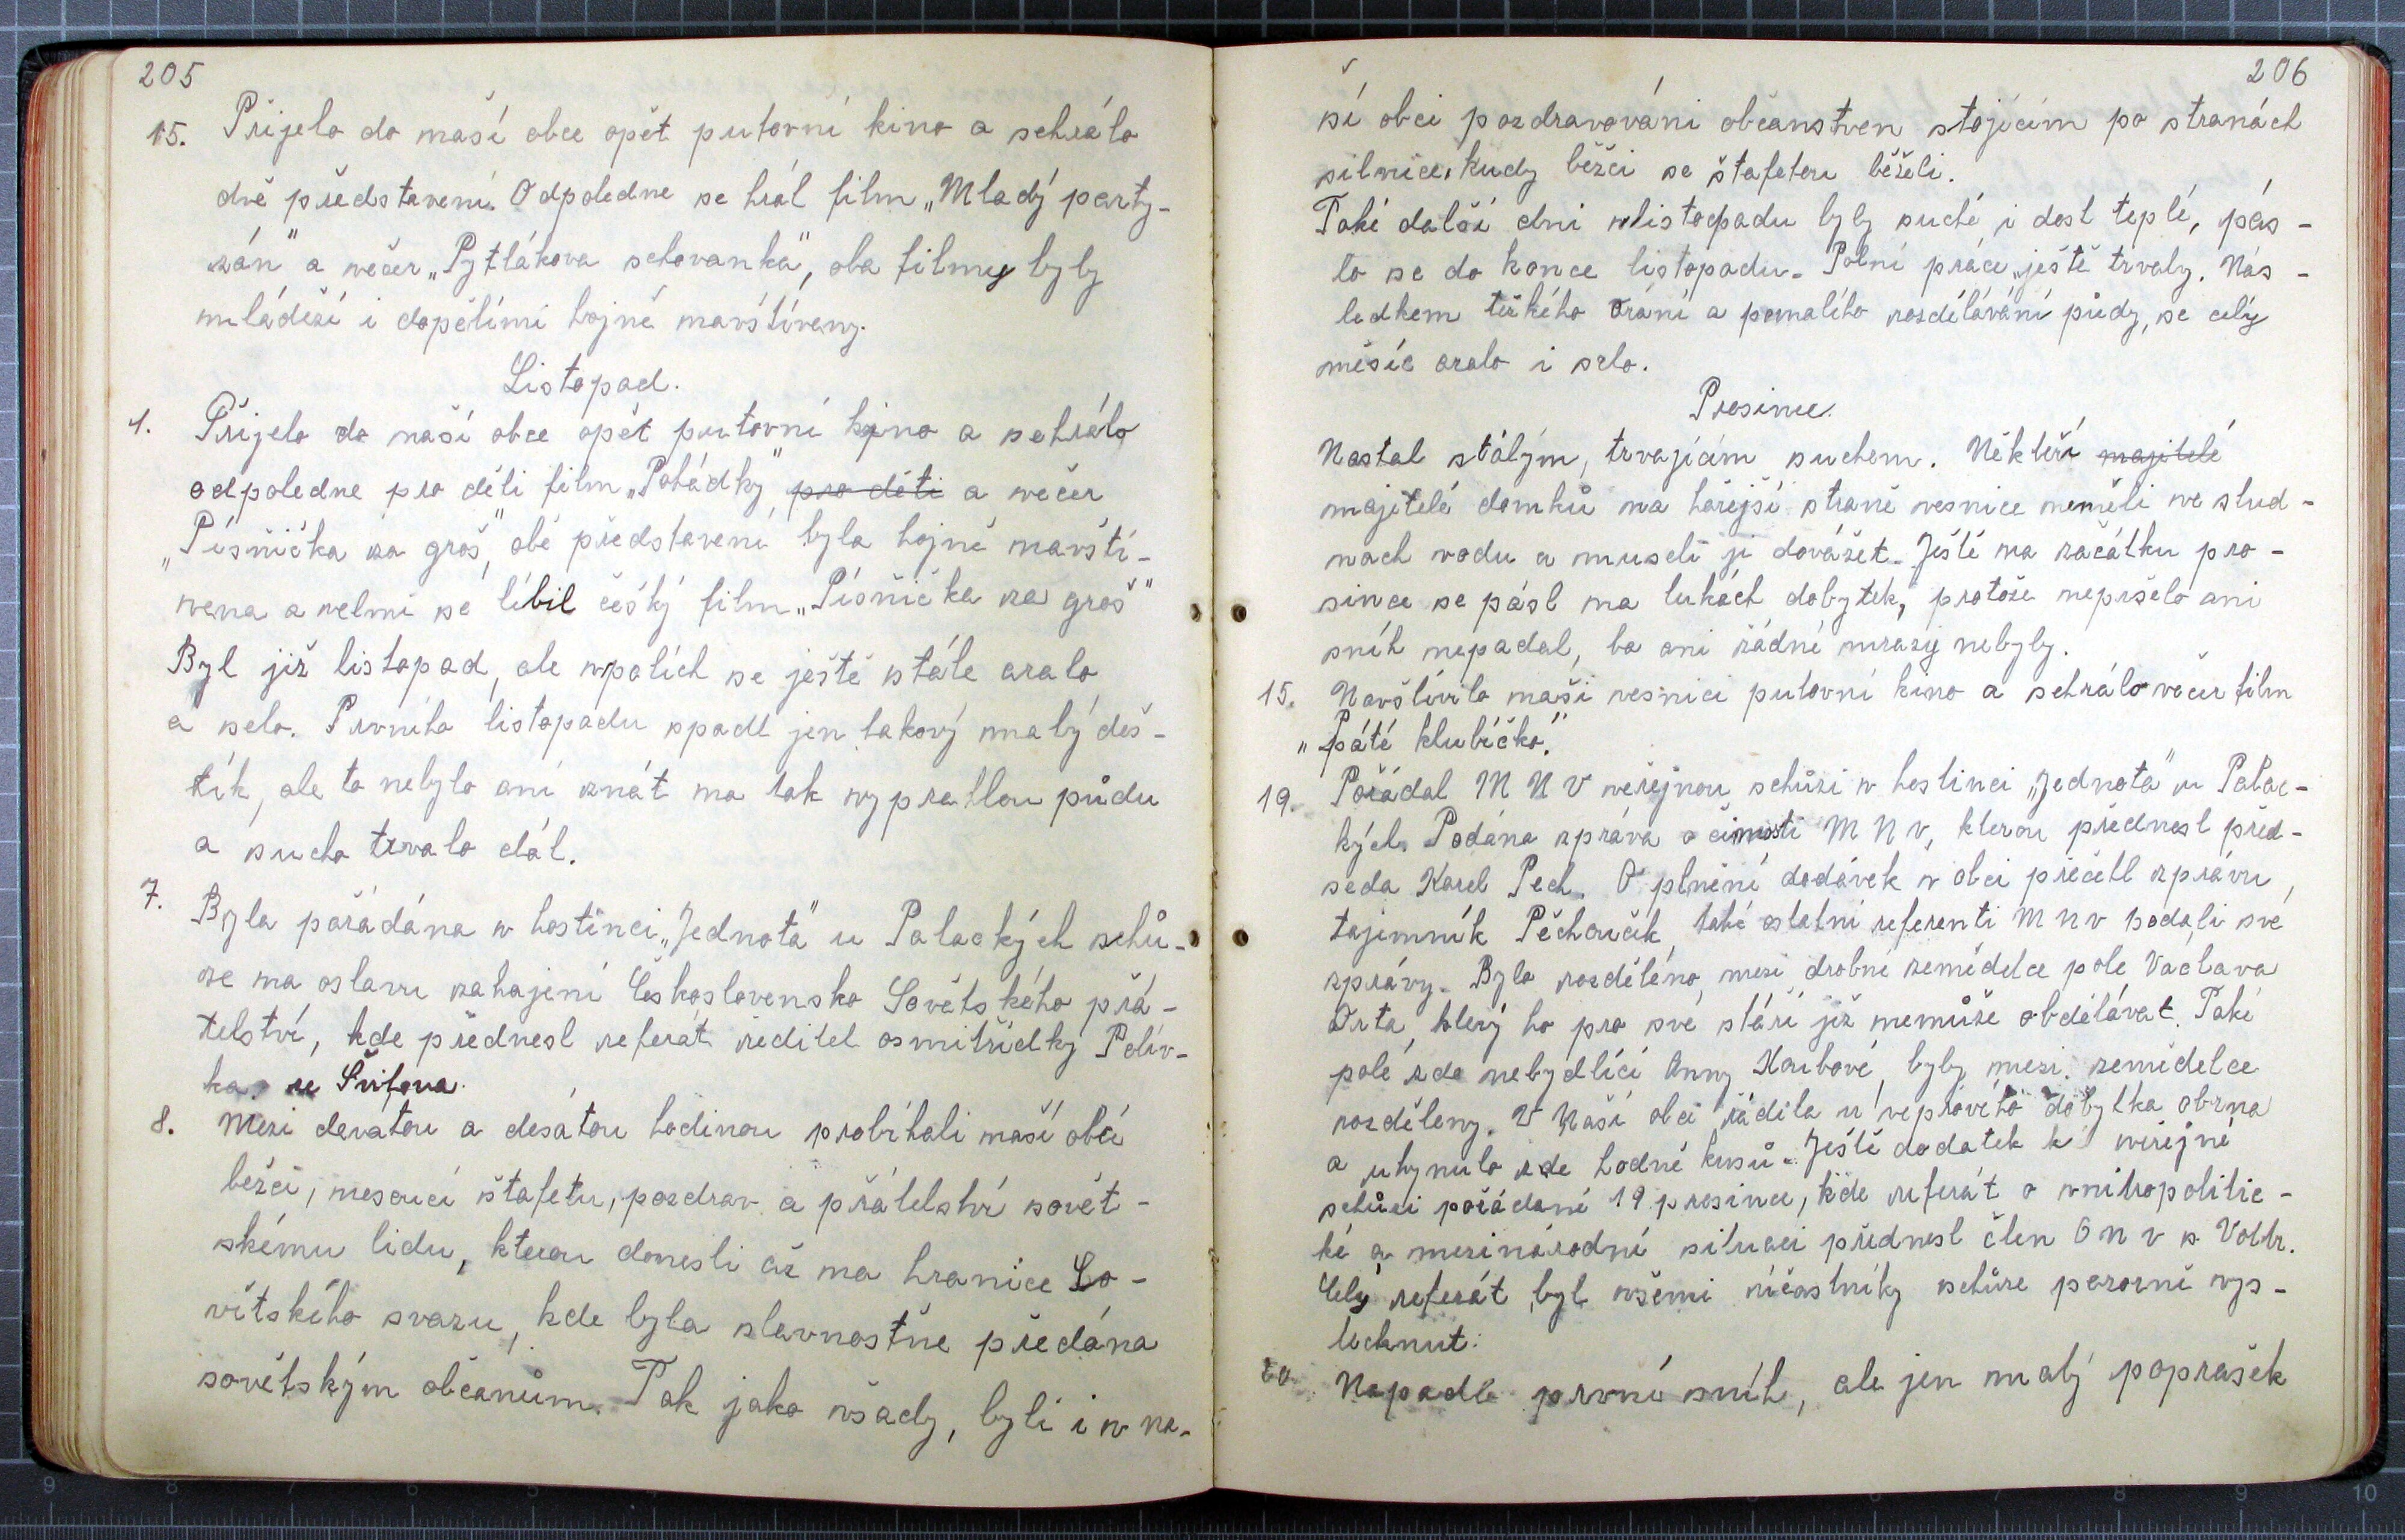 205
15. Přijelo do naší obce opět putovní kino a sehrálo
dvě představení. Odpoledne se hrál film „Mladý party-
zán" a večer „Pytlákova schovanka", oba filmy byly
mládeží i dospělími hojně navštíveny.
Listopad.
1. Přijelo do naší obce opět putovní kino a sehrálo
odpoledne pro děti film „Pohádky" pro děti a večer
„Písnička za groš", obě představení byla hojně navští-
vena a velmi se líbil český film „Písnička za groš"
Byl již listopad, ale v polích se ještě stále oralo
a selo. Prvního listopadu spadl jen takový malý deš-
tík, ale to nebylo ani znát na tak vyprahlou půdu
a sucho trvalo dál.
7. Byla pořádána v hostinci „Jednota" u Palackých schů-
ze na oslavu zahajení Československo Sovětského přá-
telství, kde přednesl referát ředitel osmitřídky Polív-
ka. ze Švifova.
8. Mezi devátou a desátou hodinou probíhali naší obcí
běžci, nesoucí štafetu, pozdrav a přátelství sovět-
skému lidu, kterou donesli až na hranice So-
větského svazu, kde byla slavnostně předána
sovětským občanům. Tak jako všady, byli i v na-
206
ší obci pozdravováni občanstvem stojícím po stranách
silnice, kudy běžci se štafetou běželi.
Také další dni v listopadu byly suché i dost teplé, pás-
lo se do konce listopadu. Polní práce ještě trvaly. Nás-
ledkem těžkého orání a pomalého rozdělávání půdy, se celý
měsíc oralo i selo.
Prosinec.
Nastal stálým, trvajícím suchem. Někteří majitelé
majitelé domků na hořejší straně vesnice neměli ve stud-
nach vodu a museli ji dovážet. Ještě na začátku pro-
since se pásl na lukách dobytek, protože nepršelo ani
sníh nepadal, ba ani žádné mrazy nebyly.
15. Navštívilo naši vesnici putovní kino a sehrálo večer film
„Páté klubíčko".
19. Pořádal M N V veřejnou schůzi v hostinci „Jednota" u Palac-
kých. Podána zpráva o činnosti M N V, kterou přednesl před-
seda Karel Pech. O plnění dodávek v obci přečetl zprávu,
tajemník Pěchouček, také ostatní referenti M N V podali své
zprávy. Bylo rozděleno, mezi drobné zemědelce pole Vaclava
Orta, který ho pro své stáří již nemůže obdělávat. Také
pole zde nebydlící Anny Koubové, byly mezi zemědelce
rozděleny. V naší obci řádila u vepřového dobytka obrna
a uhynulo zde hodně kusů. Ještě dodatek k veřejné
schůzi pořádané 19 prosince, kde referát o vnitropolitic-
ké a mezinárodní situaci přednesl člen O N V s.
Celý referát byl všemi účastníky schůze pozorně vys-
lechnut.
20. Napadl první sníh, ale jen malý poprašek